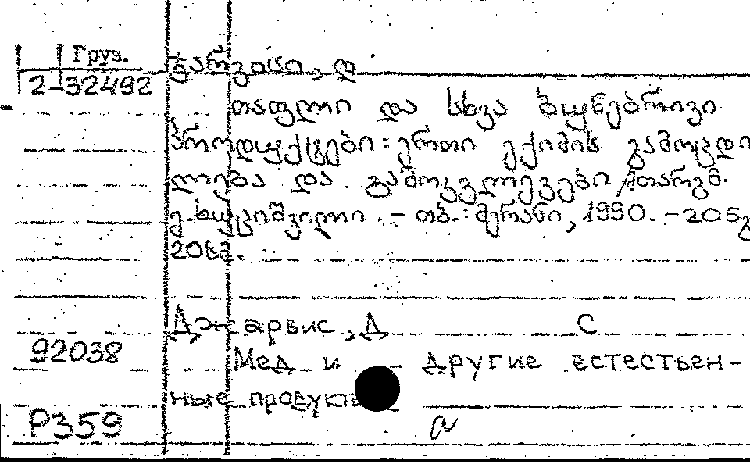 Груз.
2-32492
ჯარვისი, დ
თაფლი და სხვა ბუნებრივი
პროდუქტები: ერთი ექიმის გამოცდი
ლება და გამოკვლევები /მთარგმ.
- თბ.: მერანი, 1990. - 205გ
20სმ.
Джарвис, Д С
92038
Мед и другие естествен-
ные продукты
Р359
а